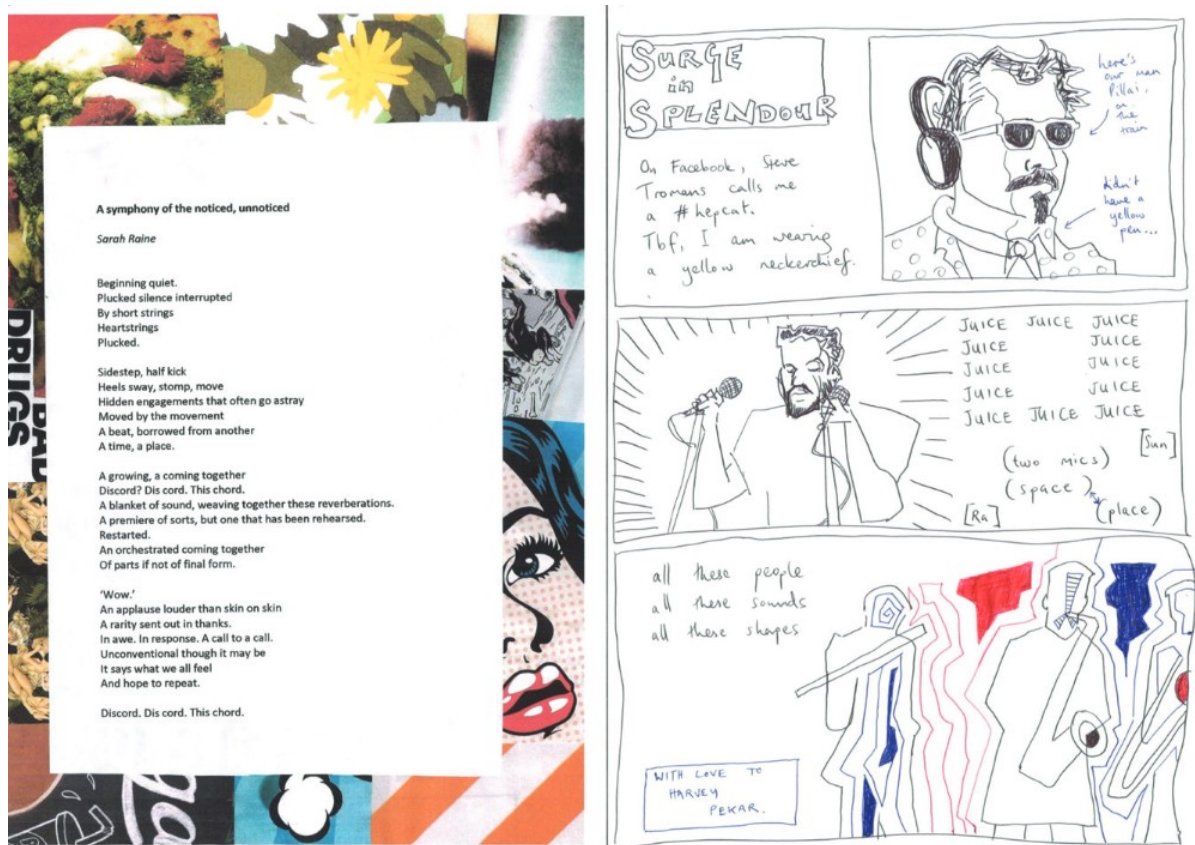 A symphony of the noticed, unnoticed
Sarah Raine
Beginning quiet.
Plucked silence interrupted
By short strings
Heartstrings
Plucked.
Sidestep, half kick
Heels sway, stomp, move
Hidden engagements that often go astray
Moved by the movement
A beat, borrowed from another
A time, a place.
A growing, a coming together
Discord? Dis cord. This chord.
A blanket of sound, weaving together these reverberations.
A premiere of sorts, but one that has been rehearsed.
Restarted.
An orchestrated coming together
Of parts if not of final form.
'Wow.'
An applause louder than skin on skin
A rarity sent out in thanks.
In awe. In response. A call to a call.
Unconventional though it may be
It says what we all feel
And hope to repeat.
Discord. Dis cord. This chord.
DRUGS
BAD
ga
SURGE
in
SPLENDOUR
On Facebook, Steve
Tromans calls me
a #hepcat.
Tbf, I am wearing
a yellow neckerchief.
here's
our man
Pillai,
on
the
train
didn't
have a
yellow
pen...
JUICE JUICE JUICE
JUICE JUICE
JUICE JUICE
JUICE JUICE
JUICE JUICE JUICE
[Sun]
(two mics)
(space)
[Ra]
(place)
all these people
all these sounds
all these shapes
WITH LOVE TO
HARVEY
PEKAR.